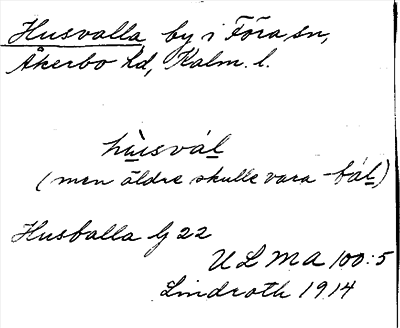 Husvalla by i Föra sn,
Åkerbo hd, Kalm. l.
hùsvál
(men äldre skulle vara -bál)
Husballa Lj 22
ULMA 100:5
Lindroth 1914